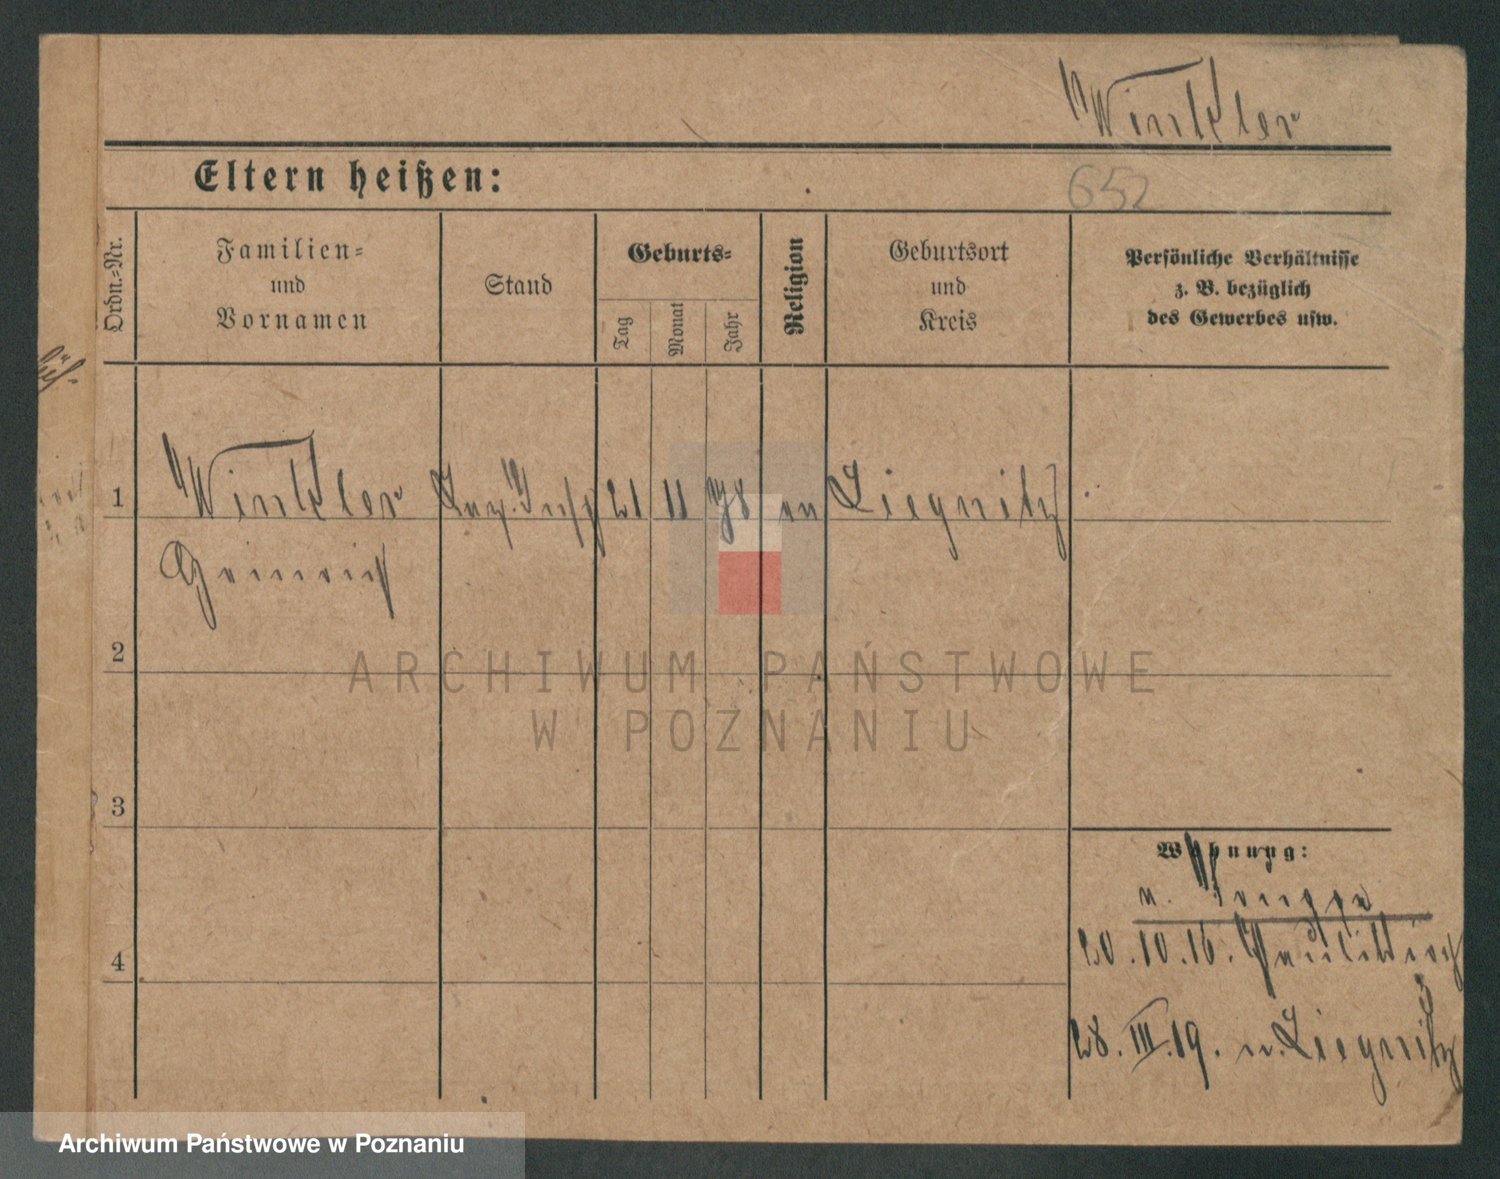 Winkler
Eltern heißen:
652
Ordn.=Nr.
Familien=
und
Vornamen
Stand
Geburts=
Tag
Monat
Jahr
Religion
Geburtsort
und
Kreis
Persönliche Verhältnisse
z. B. bezüglich
des Gewerbes usw.
1
Winkler
21 11 78 ev Liegnitz
Heinrich
2
ARCHIWUM PAŃSTWOWE
W POZNANIU
3
Wohnung:
v.
4
20.10.16.
28. III. 19. n. Liegnitz
Archiwum Państwowe w Poznaniu